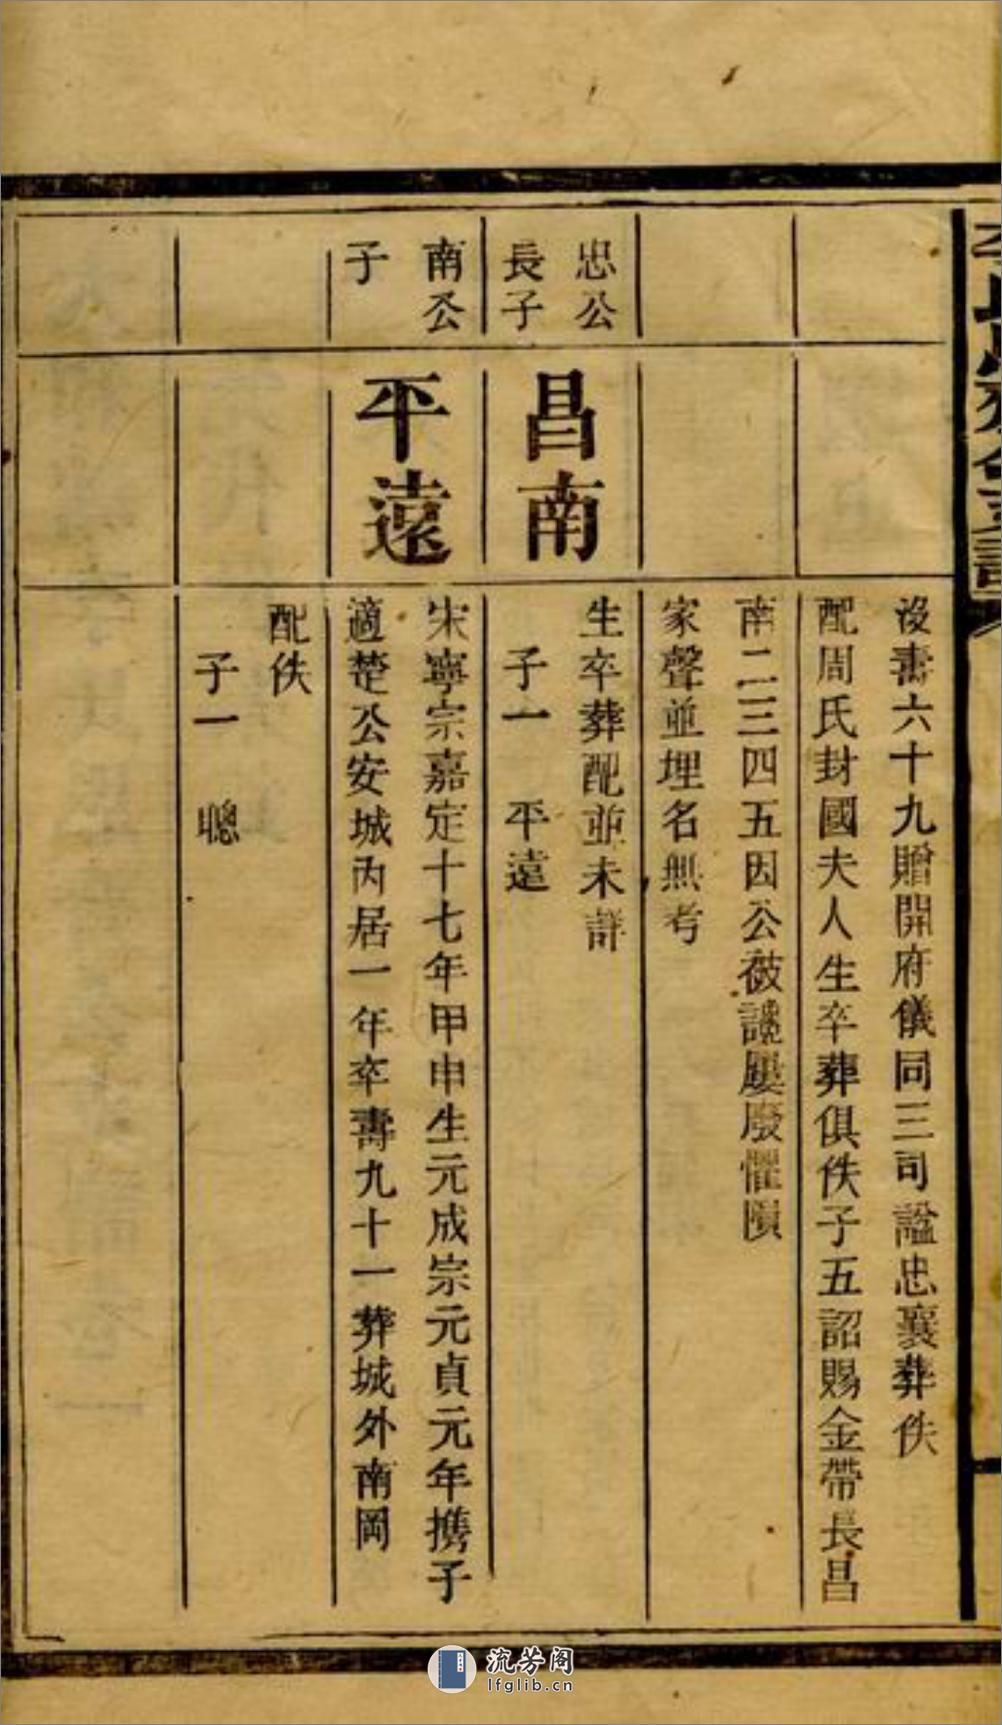 沒壽六十九贈開府儀同三司謚忠襄葬佚
配周氏封國夫人生卒葬俱佚子五詔賜金帶長昌
南二三四五因公被讒屢廢懼隕
家聲並埋名無考
忠公
長子
昌南
生卒葬配並未詳
子一 平遠
南公
子
平遠
宋寧宗嘉定十七年甲申生元成宗元貞元年攜子
適楚公安城內居一年卒壽九十一葬城外南岡
配佚
子一 聰
流芳阁
lfglib.cn